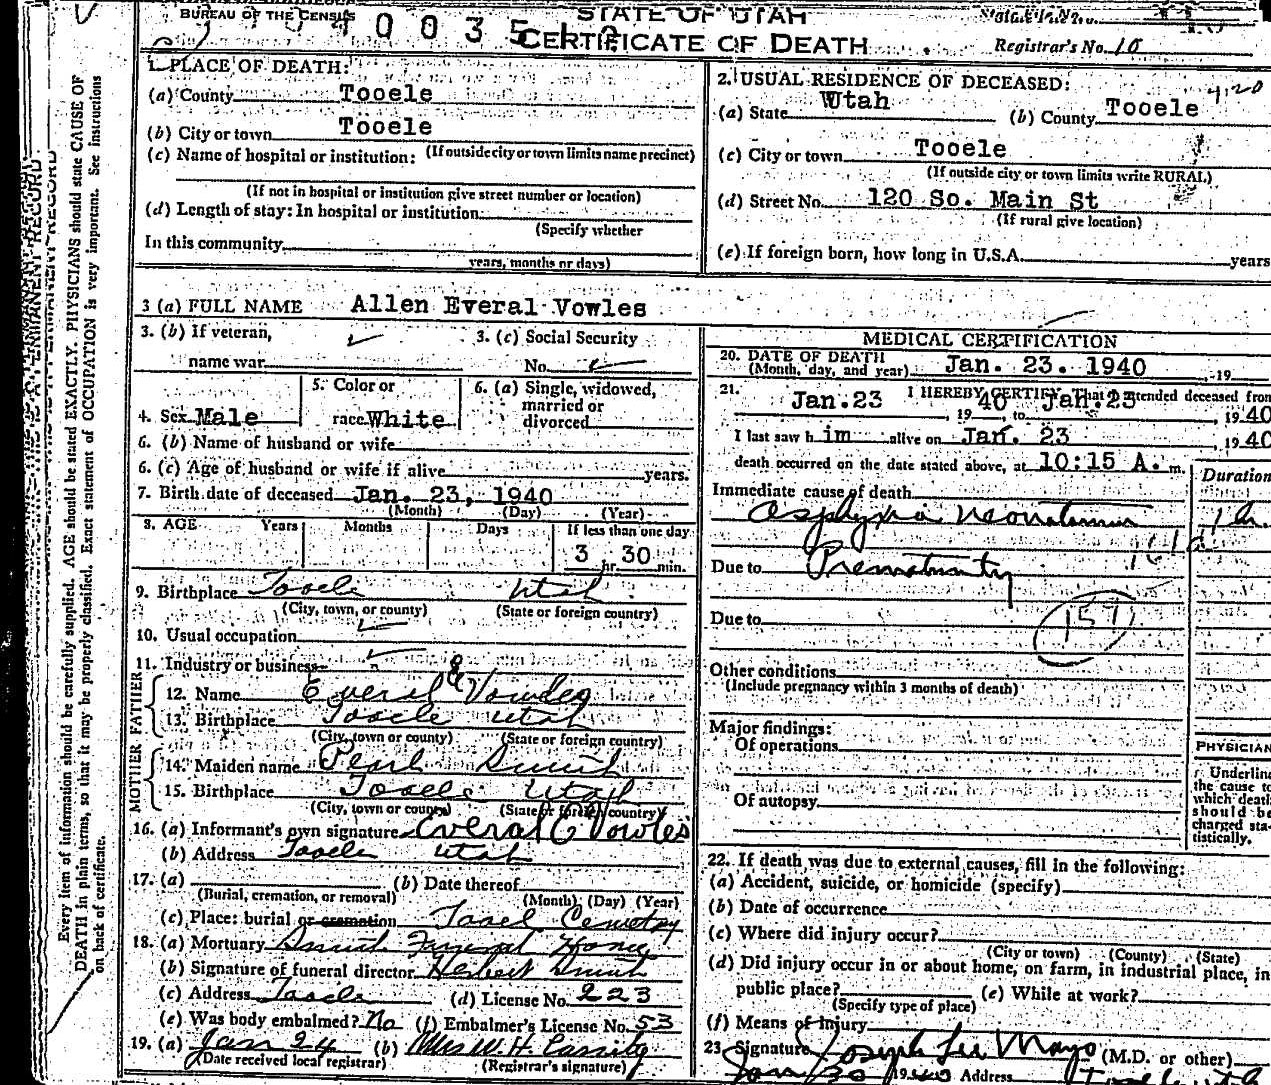 BUREAU OF THE CENSUS
STATE OF UTAH
CERTIFICATE OF DEATH
Registrar's No. 10
1. PLACE OF DEATH:
(a) County Tooele
(b) City or town Tooele
(If outside city or town limits name precinct)
(c) Name of hospital or institution:
(If not in hospital or institution give street number or location)
(d) Length of stay: In hospital or institution
(Specify whether
In this community
years, months or days)
2. USUAL RESIDENCE OF DECEASED:
(a) State Utah (b) County Tooele
(c) City or town Tooele
(If outside city or town limits write RURAL)
(d) Street No. 120 So. Main St
(If rural give location)
(e) If foreign born, how long in U.S.A. years
3 (a) FULL NAME Allen Everal Vowles
3. (b) If veteran,
name war
3. (c) Social Security
No.
4. Sex Male
5. Color or
race White
6. (a) Single, widowed,
married or
divorced
6. (b) Name of husband or wife
6. (c) Age of husband or wife if alive years.
7. Birth date of deceased Jan. 23, 1940
(Month) (Day) (Year)
8. AGE Years Months Days If less than one day
3 hr. 30 min.
9. Birthplace Tooele Utah
(City, town, or county) (State or foreign country)
10. Usual occupation
11. Industry or business
FATHER
12. Name Everal E Vowles
13. Birthplace Tooele Utah
(City, town or county) (State or foreign country)
MOTHER
14. Maiden name Pearl Smith
15. Birthplace Tooele Utah
(City, town or county) (State or foreign country)
16. (a) Informant's own signature Everal E Vowles
(b) Address Tooele Utah
17. (a) (b) Date thereof
(Burial, cremation, or removal) (Month) (Day) (Year)
(c) Place: burial or cremation Tooel Cemetry
18. (a) Mortuary Smith Funeral Home
(b) Signature of funeral director Herbert Smith
(c) Address Tooele (d) License No. 223
(e) Was body embalmed? No (f) Embalmer's License No. 53
19. (a) Jan 24 (b) Mrs W. H. Cassity
(Date received local registrar) (Registrar's signature)
MEDICAL CERTIFICATION
20. DATE OF DEATH
(Month, day, and year) Jan. 23. 1940 19
21. I HEREBY CERTIFY, That I attended deceased from
Jan. 23 1940 to Jan. 23, 1940
I last saw him alive on Jan. 23 1940
death occurred on the date stated above, at 10:15 A. m.
Duration
Immediate cause of death
Asphyxia Neonatorum 1 hr.
161a
Due to Prematurity
159
Due to
Other conditions
(Include pregnancy within 3 months of death)
Major findings:
Of operations
Of autopsy
PHYSICIAN
Underline
the cause to
which death
should be
charged sta-
tistically.
22. If death was due to external causes, fill in the following:
(a) Accident, suicide, or homicide (specify)
(b) Date of occurrence
(c) Where did injury occur?
(City or town) (County) (State)
(d) Did injury occur in or about home, on farm, in industrial place, in
public place? (e) While at work?
(Specify type of place)
(f) Means of Injury
23. Signature Joseph Lee Mayo (M.D. or other)
Jan 30 1940 Address
Every item of information should be carefully supplied. AGE should be stated EXACTLY. PHYSICIANS should state CAUSE OF
DEATH in plain terms, so that it may be properly classified. Exact statement of OCCUPATION is very important. See instructions
on back of certificate.